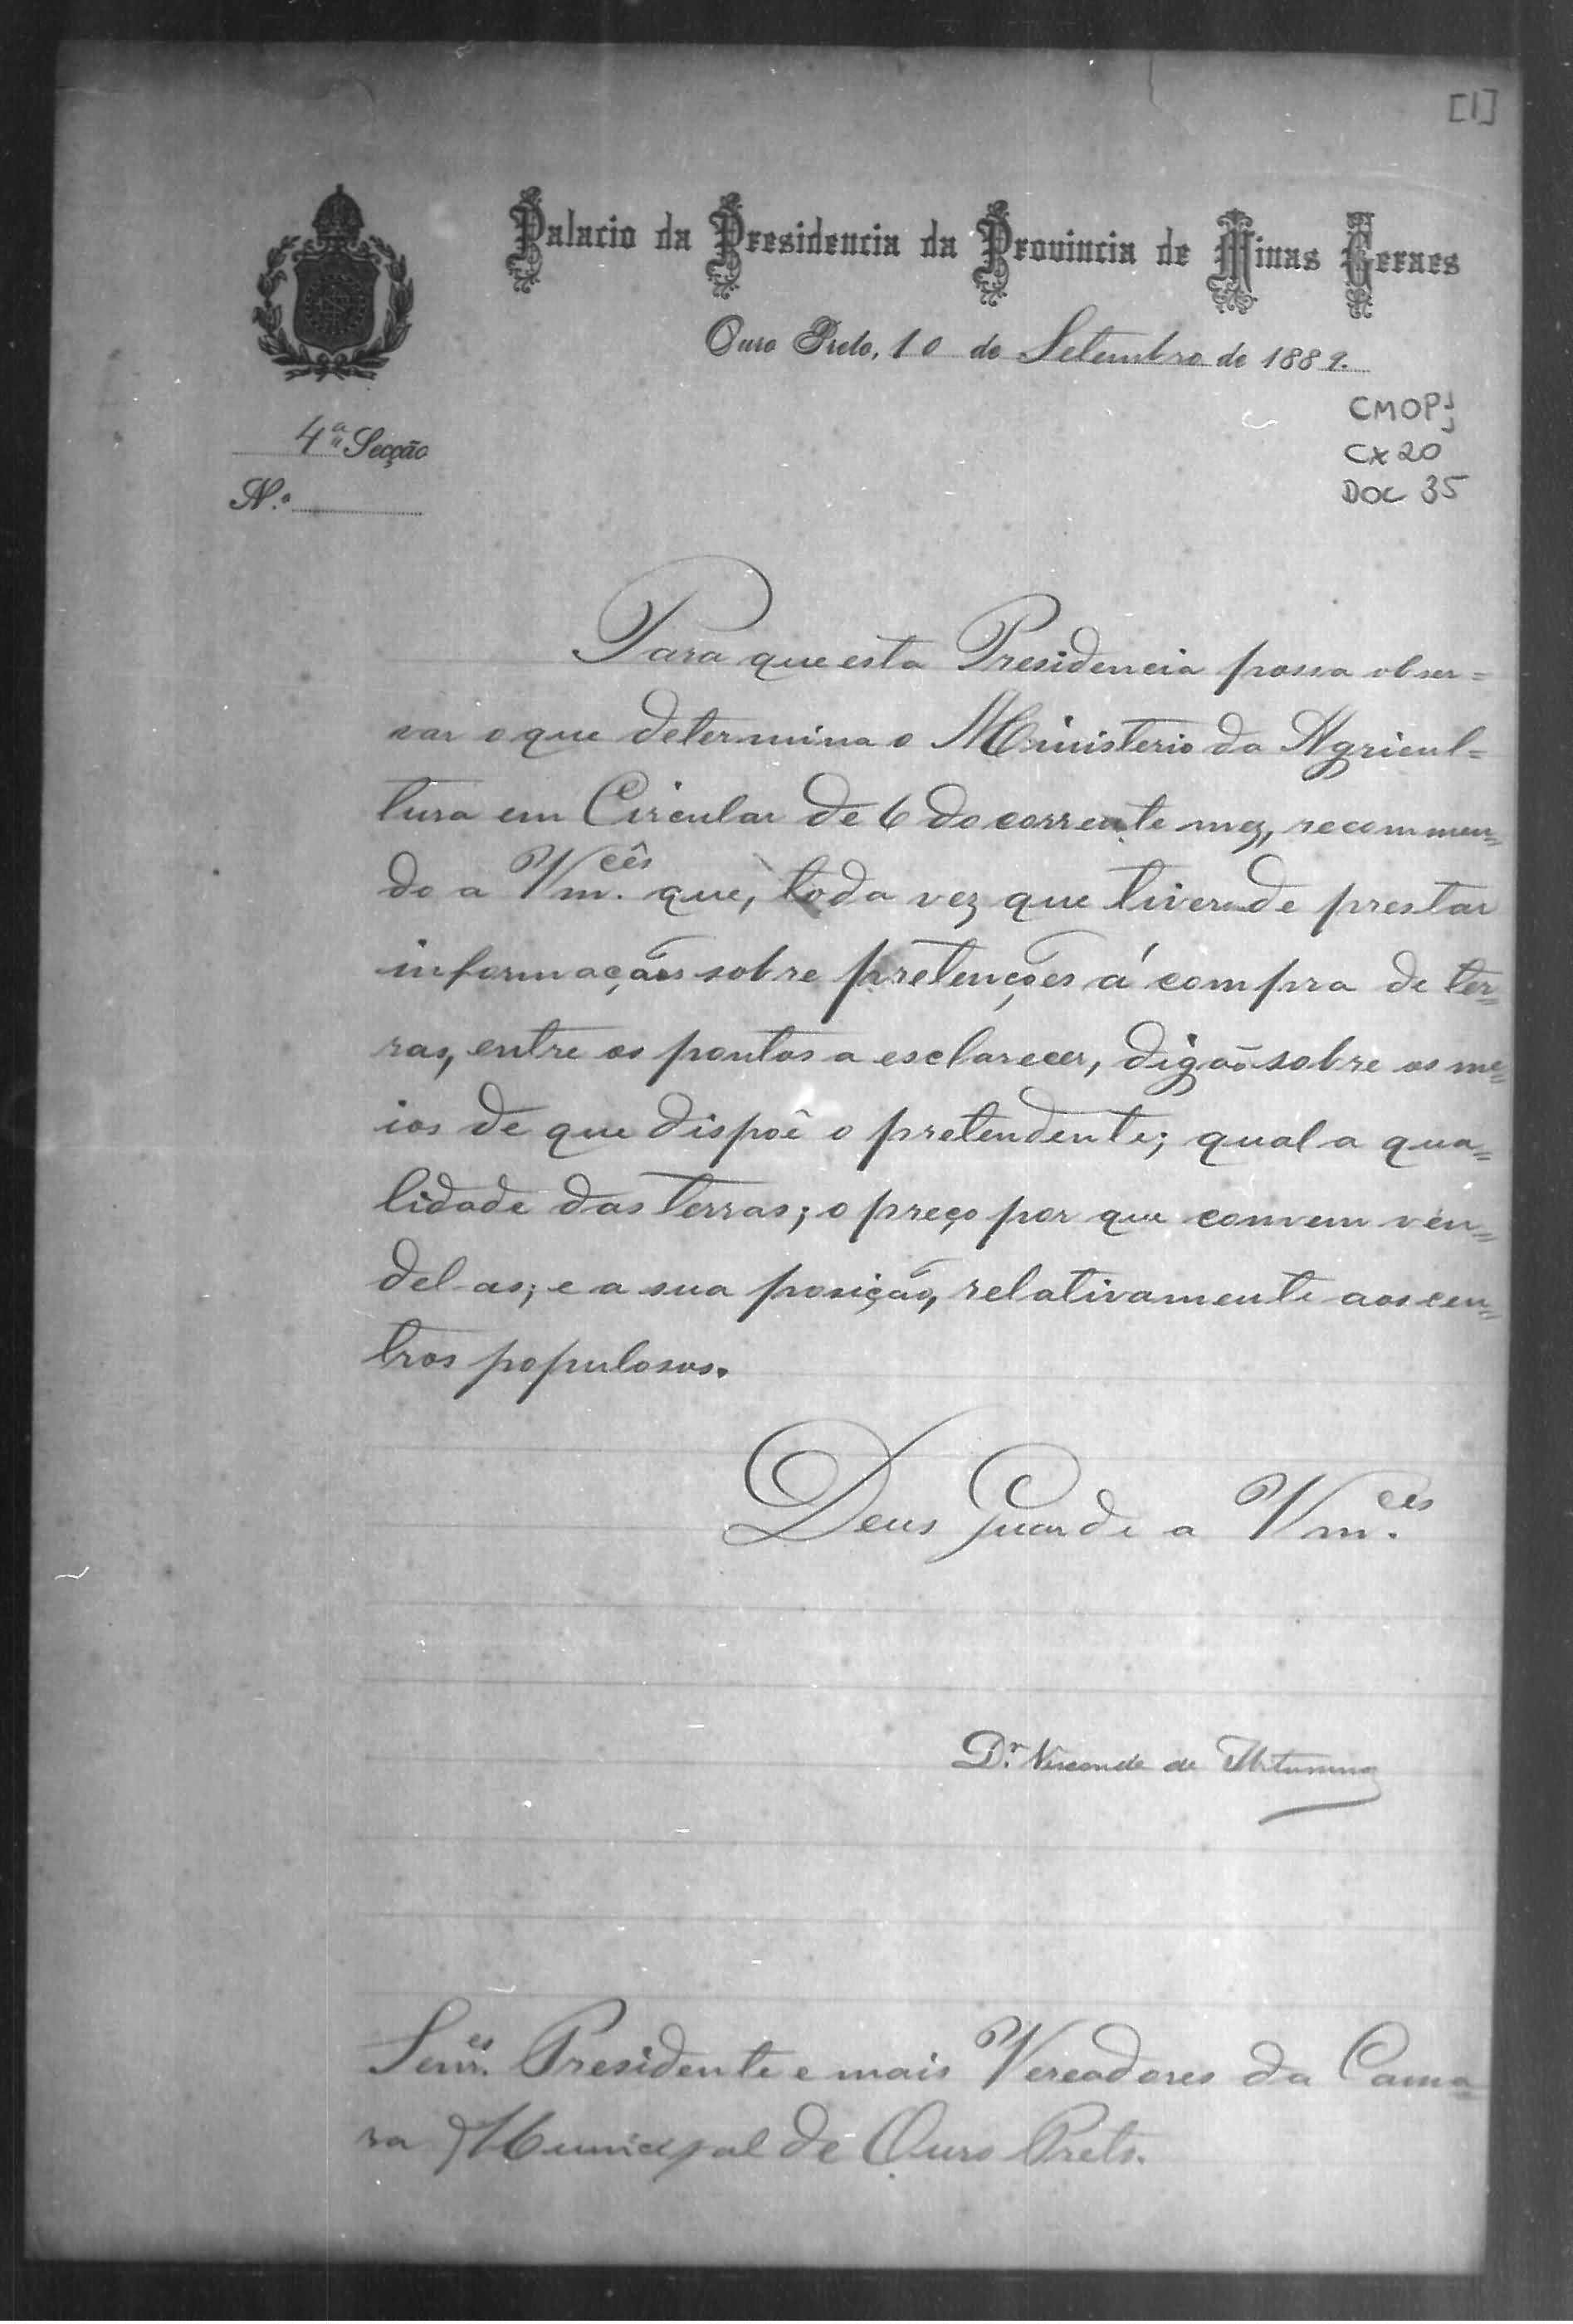 [1]
Palacio da Presidencia da Provincia de Minas Geraes
Ouro Preto, 10 de Setembro de 1889.
CMOP
CX 20
DOC 35
4ª Secção
N.º
Para que esta Presidencia possa obser=
var o que determina o Ministerio da Agricul=
tura em Circular de 6 do corrente mez, recommen=
do a Vm.cês que, toda vez que tiverem de prestar
informações sobre pretenções á compra de ter=
ras, entre os pontos a esclarecer, digão sobre os me=
ios de que dispoê o pretendente; qual a qua=
lidade das terras; o preço por que convem ven=
del-as; e a sua posição, relativamente aos cen=
tros populosos.
Deus Guarde a Vm.ces
D.r Visconde de Ibituruna
Senr.es Presidente e mais Vereadores da Cama=
ra Municipal de Ouro Preto.